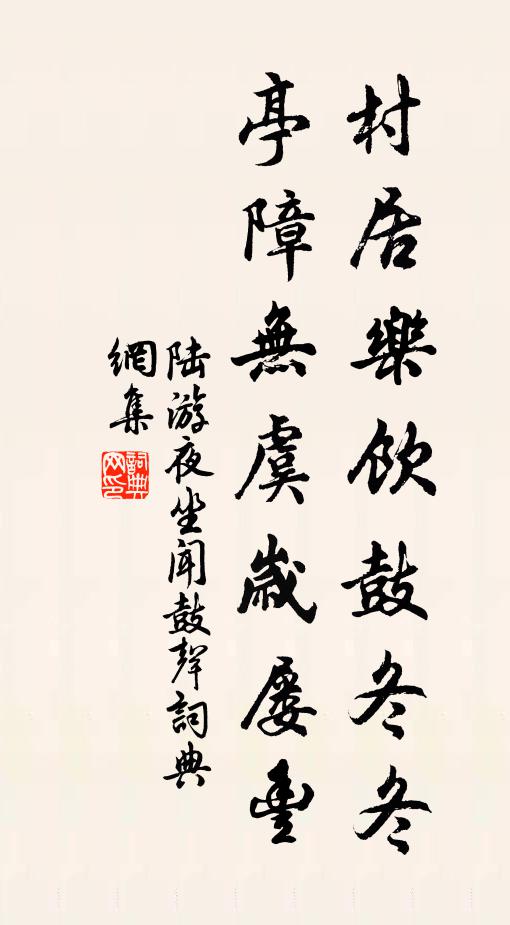 村居樂飲鼓冬冬
亭障無虞歲屡豐
陆游夜坐闻鼓聲詞典
網集
詞典網印